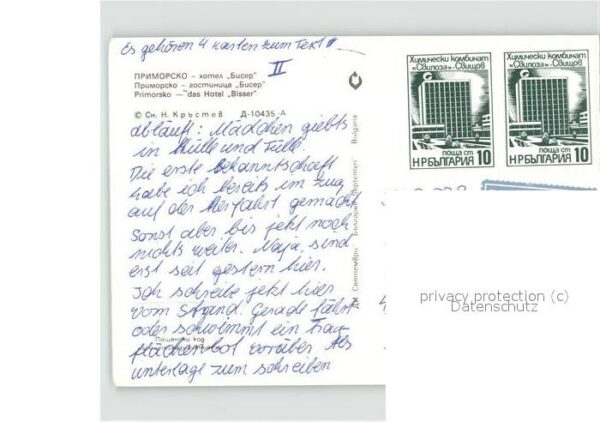 Es gehören 4 Karten zum Text !!
II
ПРИМОРСКО – хотел „Бисер“
Приморско – гостиница „Бисер“
Primorsko — das Hotel „Bisser“
© Сн. Н. Кръстев Д-10435-А
abläuft: Mädchen giebts
in Hülle und Fülle.
Die erste Bekanntschaft
habe ich bereits im Zug
auf der Herfahrt gemacht
Sonst aber bis jetzt noch
nichts weiter. Naja, sind
erst seit gestern hier.
Ich schreibe jetzt hier
vom Strand. Gerade fährt
oder schwimmt ein Trag-
flächenbot vorüber. Als
unterlage zum schreiben
Пощенски код
ДИ Септември България Bulgaria
Химически комбинат
„Свилоза“-Свищов
поща ст
НР БЪЛГАРИЯ 10
Химически комбинат
„Свилоза“-Свищов
поща ст
НР БЪЛГАРИЯ 10
privacy protection (c)
Datenschutz